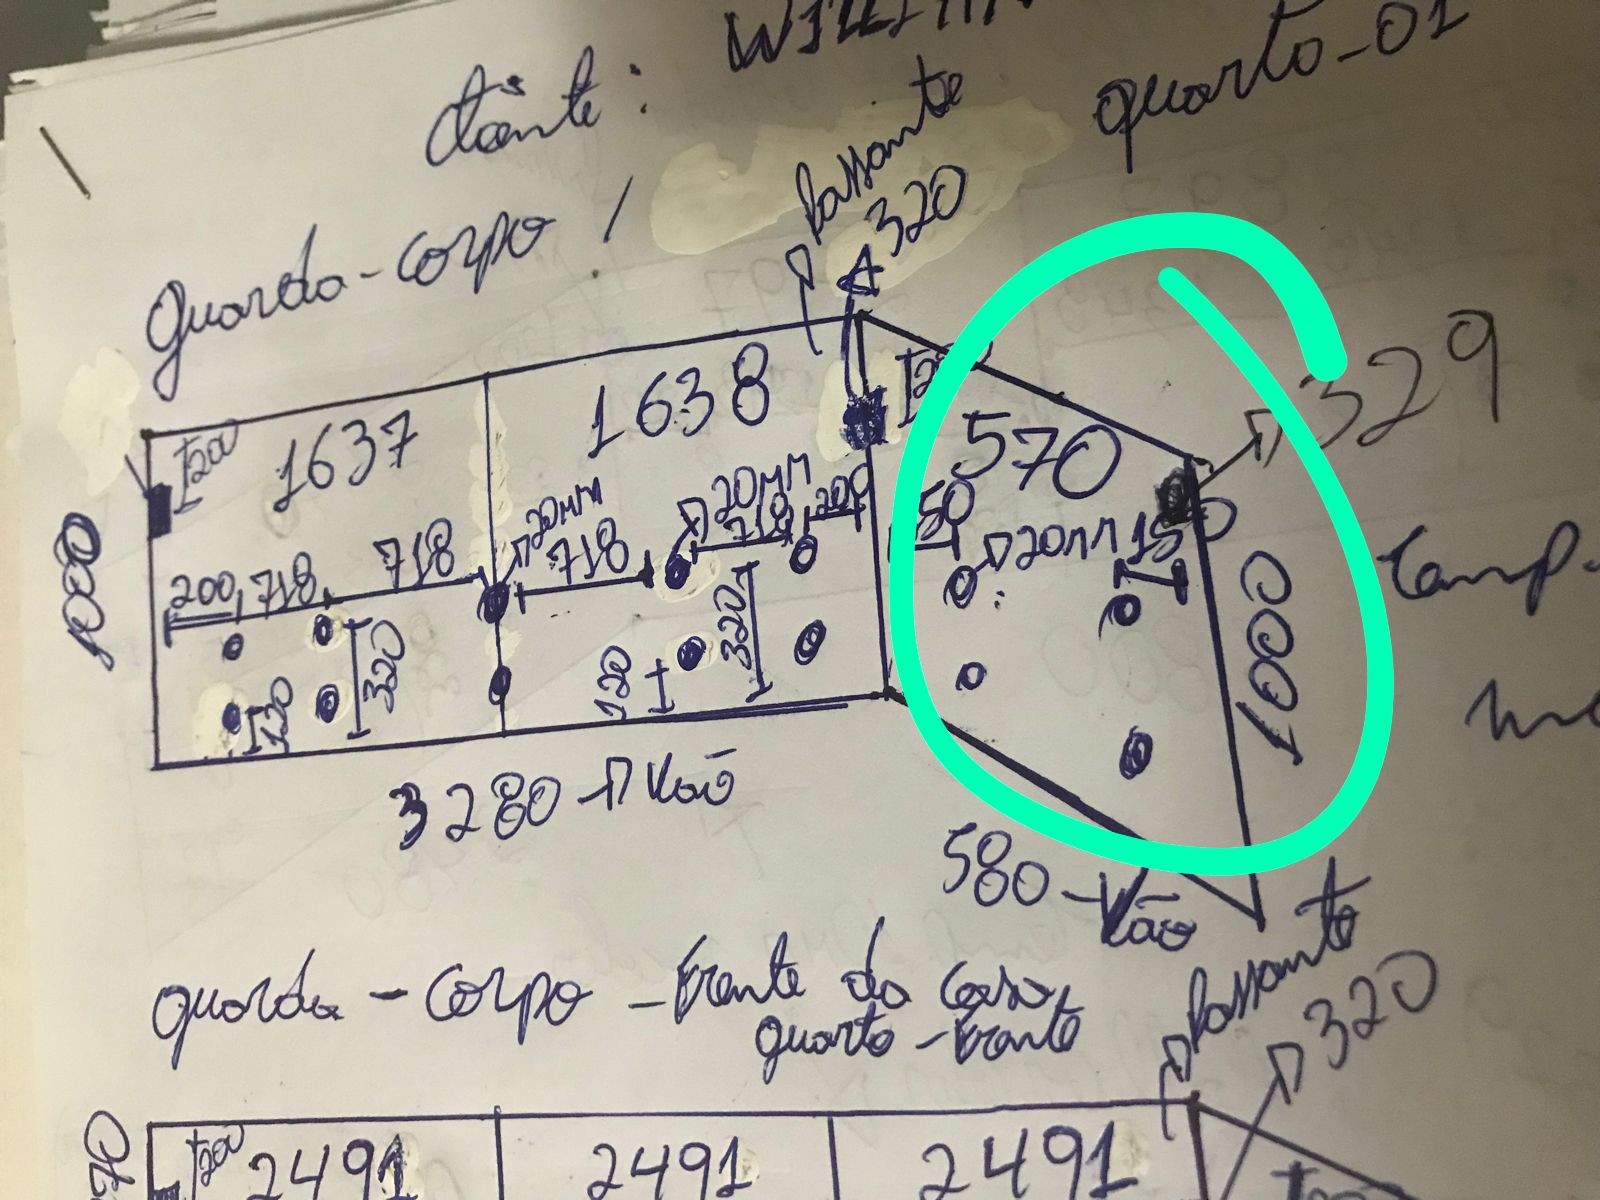 WILLIAN
quarto-01
Passante
320
Guarda-corpo /
329
I200
1637
1638
570
1000
20mm
20mm
200
718
718
718
718
200
20mm
150
320
120
120
320
1000
3280 Vão
580 Vão
Guarda-corpo - Frente da Casa,
quarto - Frente
Passante
320
I200
2491
2491
2491